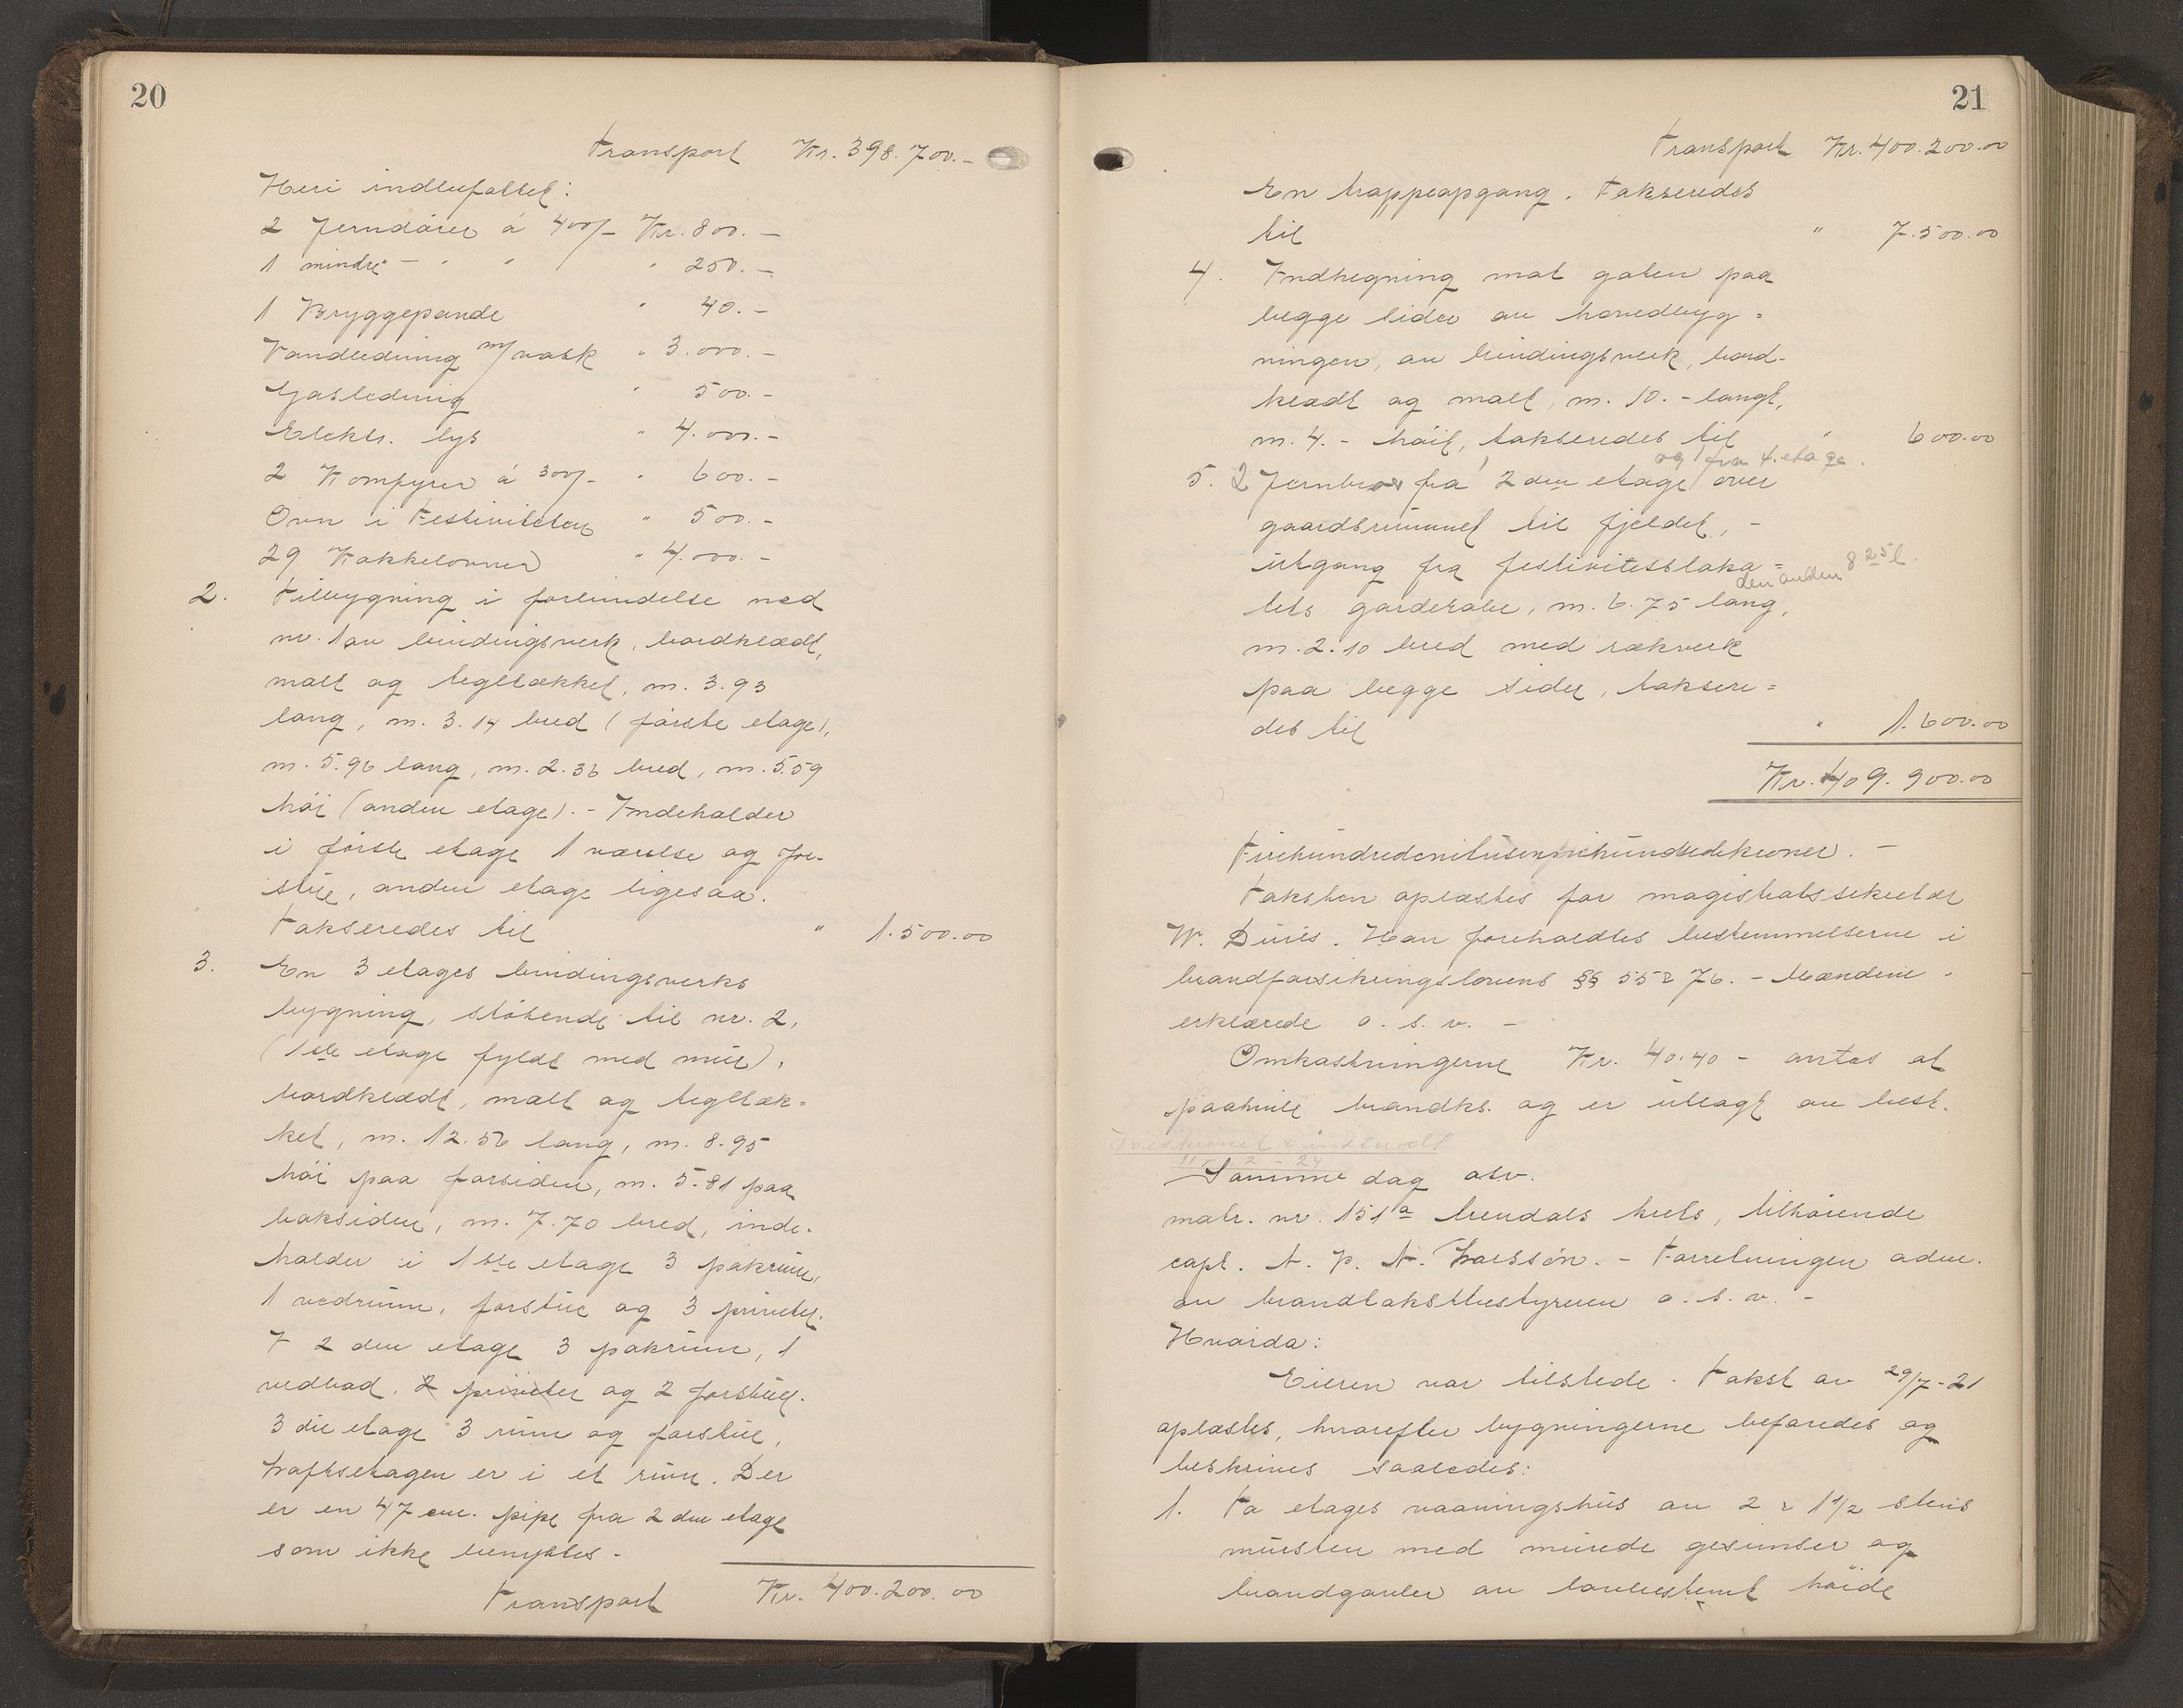 20
Transport Kr. 398.700.-
Heri indbefattet:
2 Jerndører á 400/- Kr. 800.-
1 mindre - " " " 250.-
1 Bryggepande " 40.-
Vandledning m/vask " 3.000.-
Gasledning " 500.-
Elektr. lys " 4.000.-
2 Komfyrer á 300/- " 600.-
Ovn i Festiviteten " 500.-
29 Kakkelovner " 4.000.-
2. Tilbygning i forbindelse med
nr. 1 av bindingsverk, bordklædt,
malt og tegltækket, m. 3.93
lang, m. 3.14 bred (første etage),
m. 5.96 lang, m. 2.36 bred, m. 5.59
høi (anden etage). - Indeholder
i første etage 1 værelse og for-
stue, anden etage ligesaa.
Takseredes til " 1.500.00
3. En 3 etages bindingsverks
bygning, støtende til nr. 2,
(1ste etage fyldt med mur),
bordklædt, malt og tegltæk-
ket, m. 12.56 lang, m. 8.95
høi paa forsiden, m. 5.81 paa
baksiden, m. 7.70 bred, inde-
holder i 1ste etage 3 pakrum,
1 vedrum, forstue og 3 priveter.
I 2den etage 3 pakrum, 1
vedbod, 2 priveter og 2 forstuer.
3die etage 3 rum og forstue,
Loftsetagen er i et rum. Der
er en 47 cm. pipe fra 2den etage
som ikke benyttes.
Transport Kr. 400.200.00
21
Transport Kr. 400.200.00
En trappeopgang. Takseredes
til " 7.500.00
4. Indhegning mot gaten paa
begge sider av hovedbyg=
ningen, av bindingsverk, bord-
klædt og malt, m. 10.- langt,
m. 4.- høit, takseredes til " 600.00
og 1 fra 4. etage.
5. 2 Jernbroer fra 2den etage over
gaardsrummet til fjeldet, -
utgang fra festivitetsloka=
den anden 8.25 l.
lets garderobe, m. 6.75 lang,
m. 2.10 bred med rækverk
paa begge sider, taksere=
des til " 1.600.00
Kr. 409.900.00
Firehundredenitusennihundredekroner. -
Taksten oplæstes for magistratssekretær
W. Durés. Han foreholdtes bestemmelserne i
brandforsikringslovens §§ 55 & 76. - Mændene
erklærede o. s. v. -
Omkostningerne Kr. 40.40 - antas at
paahvile brandks. og er utlagt av best.
Samme dag osv.
matr. nr. 151a brendals krets, tilhørende
capt. A. P. A. Larssen. - Forretningen adm.
av brandtakstbestyreren o. s. v. -
Hvorda:
Eieren var tilstede. Takst av 29/7-21
oplæstes, hvorefter bygningerne befaredes og
beskrives saaledes:
1. To etages vaaningshus av 2 & 1 1/2 stens
mursten med murede gesimser og
brandgavler av lovbestemt høide